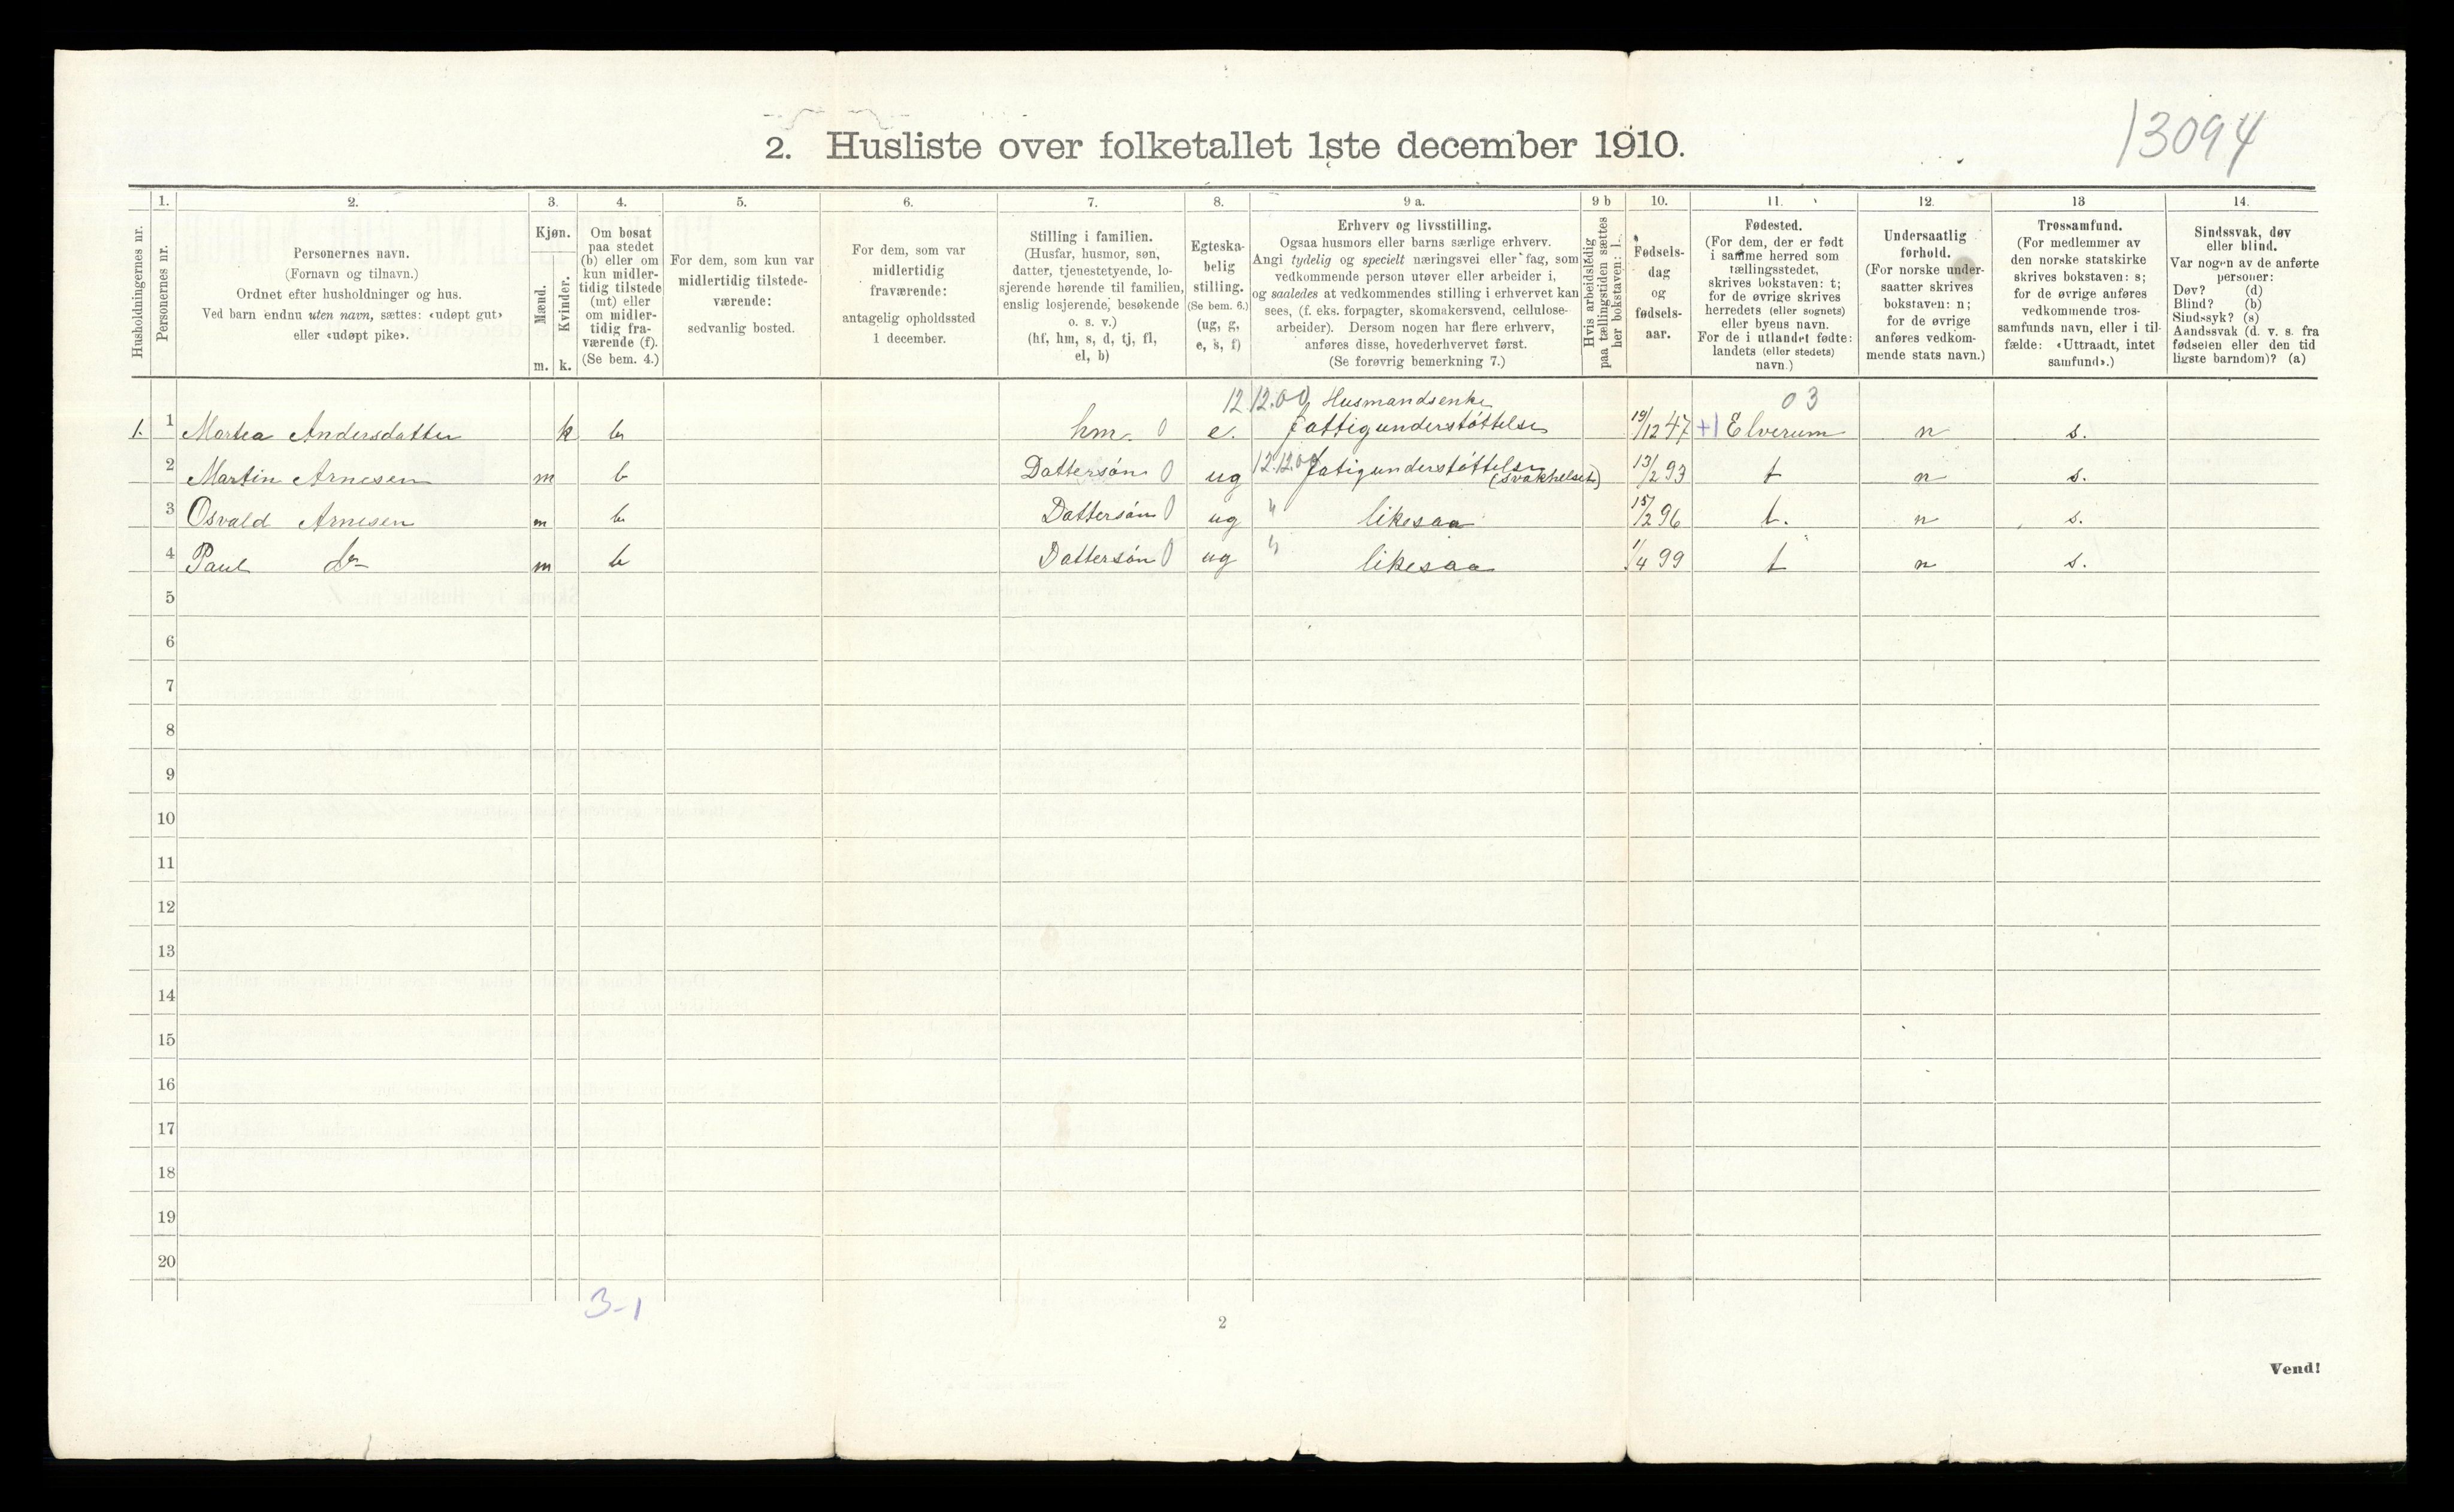 13094
2. Husliste over folketallet 1ste december 1910.
Husholdningernes nr.
1.
Personernes nr.
2.
Personernes navn.
(Fornavn og tilnavn.)
Ordnet efter husholdninger og hus.
Ved barn endnu uten navn, sættes: «udøpt gut»
eller «udøpt pike».
3.
Kjøn.
Mænd.
Kvinder.
m. k.
4.
Om bosat
paa stedet
(b) eller om
kun midler-
tidig tilstede
(mt) eller
om midler-
tidig fra-
værende (f).
(Se bem. 4.)
5.
For dem, som kun var
midlertidig tilstede-
værende:
sedvanlig bosted.
6.
For dem, som var
midlertidig
fraværende:
antagelig opholdssted
1 december.
7.
Stilling i familien.
(Husfar, husmor, søn,
datter, tjenestetyende, lo-
sjerende hørende til familien,
enslig losjerende, besøkende
o. s. v.)
(hf, hm, s, d, tj, fl,
el, b)
8.
Egteska-
belig
stilling.
(Se bem. 6.)
(ug, g,
e, s, f)
9 a.
Erhverv og livsstilling.
Ogsaa husmors eller barns særlige erhverv.
Angi tydelig og specielt næringsvei eller fag, som
vedkommende person utøver eller arbeider i,
og saaledes at vedkommendes stilling i erhvervet kan
sees, (f. eks. forpagter, skomakersvend, cellulose-
arbeider). Dersom nogen har flere erhverv,
anføres disse, hovederhvervet først.
(Se forøvrig bemerkning 7.)
9 b
Hvis arbeidsledig
paa tællingstiden sættes
her bokstaven: l.
10.
Fødsels-
dag
og
fødsels-
aar.
11.
Fødested.
(For dem, der er født
i samme herred som
tællingsstedet,
skrives bokstaven: t;
for de øvrige skrives
herredets (eller sognets)
eller byens navn.
For de i utlandet fødte:
landets (eller stedets)
navn.)
12.
Undersaatlig
forhold.
(For norske under-
saatter skrives
bokstaven: n;
for de øvrige
anføres vedkom-
mende stats navn.)
13
Trossamfund.
(For medlemmer av
den norske statskirke
skrives bokstaven: s;
for de øvrige anføres
vedkommende tros-
samfunds navn, eller i til-
fælde: «Uttraadt, intet
samfund».)
14.
Sindssvak, døv
eller blind.
Var nogen av de anførte
personer:
Døv? (d)
Blind? (b)
Sindssyk? (s)
Aandssvak (d. v. s. fra
fødselen eller den tid
ligste barndom)? (a)
12.12.00 Husmandsenke 03
1. 1 Martea Andersdatter k b hm. 0 e. fattigunderstöttelse 19/12 47 +1 Elverum n s.
2 Martin Arnesen m b Dattersön 0 ug 12.12.00 fatigunderstöttelse (svakhelset) 13/2 93 t n s.
3 Osvald Arnesen m b Dattersön 0 ug " likesaa 15/2 96 t. n s.
4 Paul do m b Dattersön 0 ug " likesaa 1/4 99 t n s.
5
6
7
8
9
10
11
12
13
14
15
16
17
18
19
20
3-1
2
Vend!